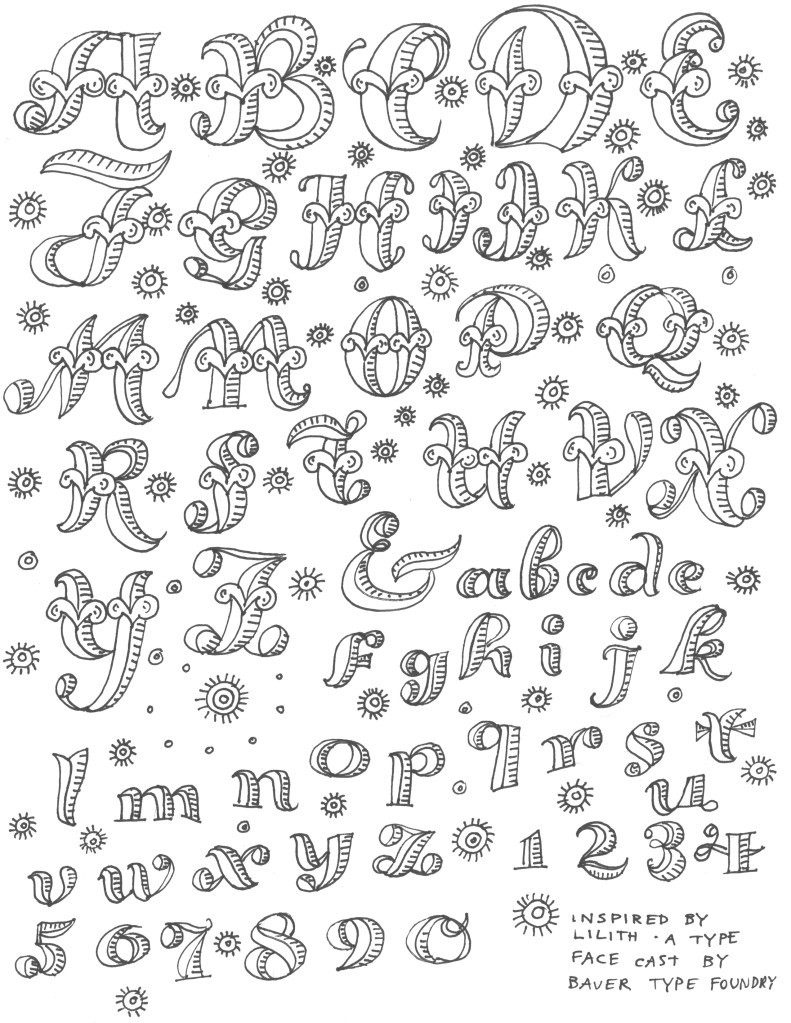 A B C D E
F G H I J K L
M M O P Q
R S T U V X
Y Z & a b c d e
f g h i j k
l m n o p q r s t
u
v w x y z 1 2 3 4
5 6 7 8 9 0
INSPIRED BY
LILITH · A TYPE
FACE CAST BY
BAUER TYPE FOUNDRY